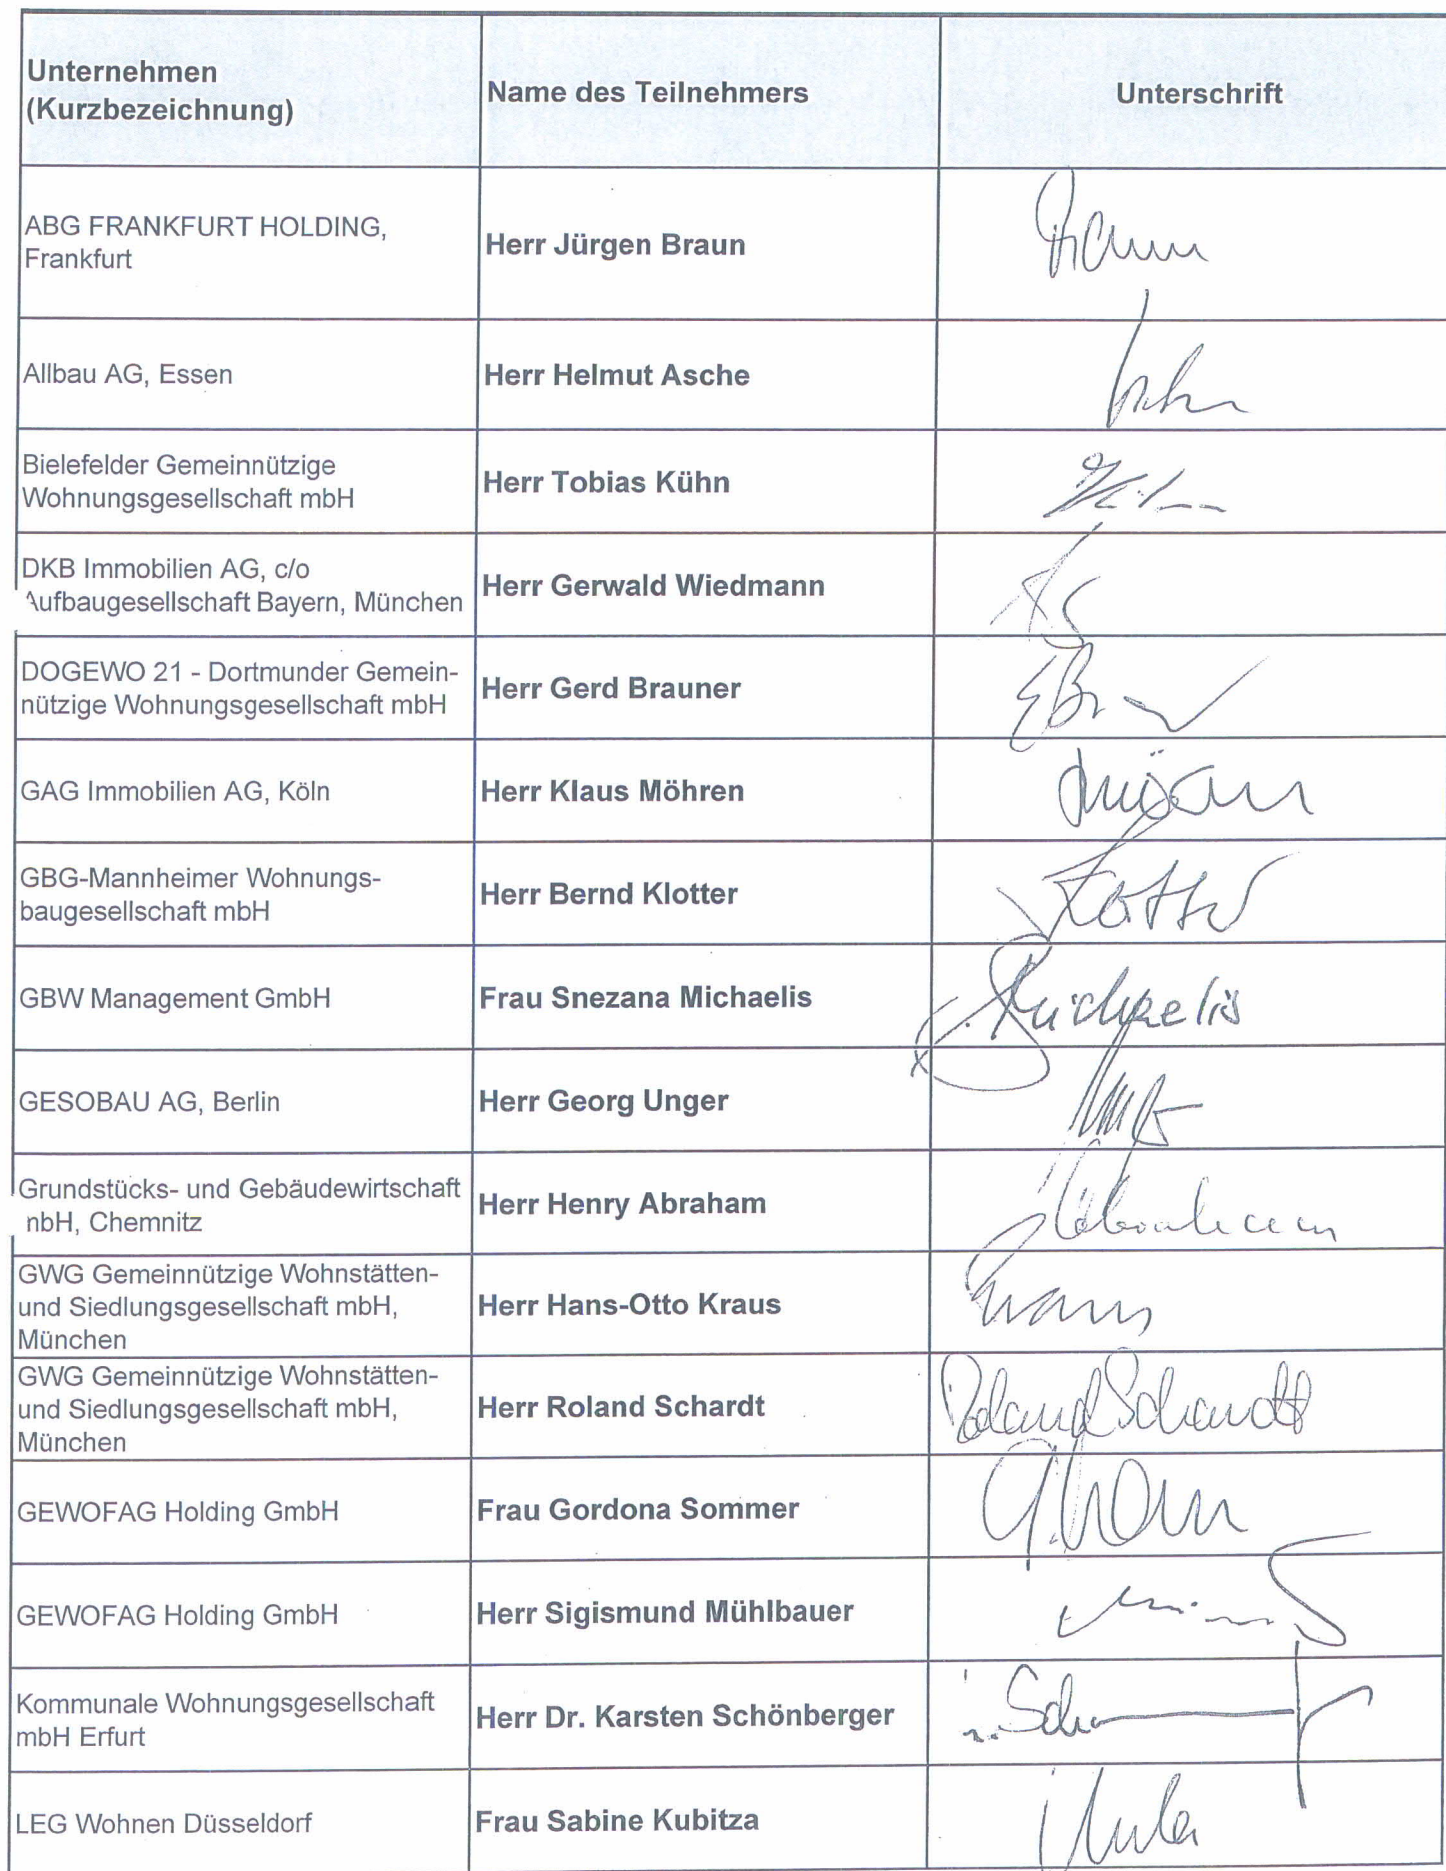 Unternehmen
(Kurzbezeichnung)
Name des Teilnehmers
Unterschrift
ABG FRANKFURT HOLDING,
Frankfurt
Herr Jürgen Braun
Allbau AG, Essen
Herr Helmut Asche
Bielefelder Gemeinnützige
Wohnungsgesellschaft mbH
Herr Tobias Kühn
DKB Immobilien AG, c/o
Aufbaugesellschaft Bayern, München
Herr Gerwald Wiedmann
DOGEWO 21 - Dortmunder Gemein-
nützige Wohnungsgesellschaft mbH
Herr Gerd Brauner
GAG Immobilien AG, Köln
Herr Klaus Möhren
GBG-Mannheimer Wohnungs-
baugesellschaft mbH
Herr Bernd Klotter
GBW Management GmbH
Frau Snezana Michaelis
S. Michaelis
GESOBAU AG, Berlin
Herr Georg Unger
Grundstücks- und Gebäudewirtschaft
mbH, Chemnitz
Herr Henry Abraham
GWG Gemeinnützige Wohnstätten-
und Siedlungsgesellschaft mbH,
München
Herr Hans-Otto Kraus
GWG Gemeinnützige Wohnstätten-
und Siedlungsgesellschaft mbH,
München
Herr Roland Schardt
Roland Schardt
GEWOFAG Holding GmbH
Frau Gordona Sommer
GEWOFAG Holding GmbH
Herr Sigismund Mühlbauer
Kommunale Wohnungsgesellschaft
mbH Erfurt
Herr Dr. Karsten Schönberger
LEG Wohnen Düsseldorf
Frau Sabine Kubitza